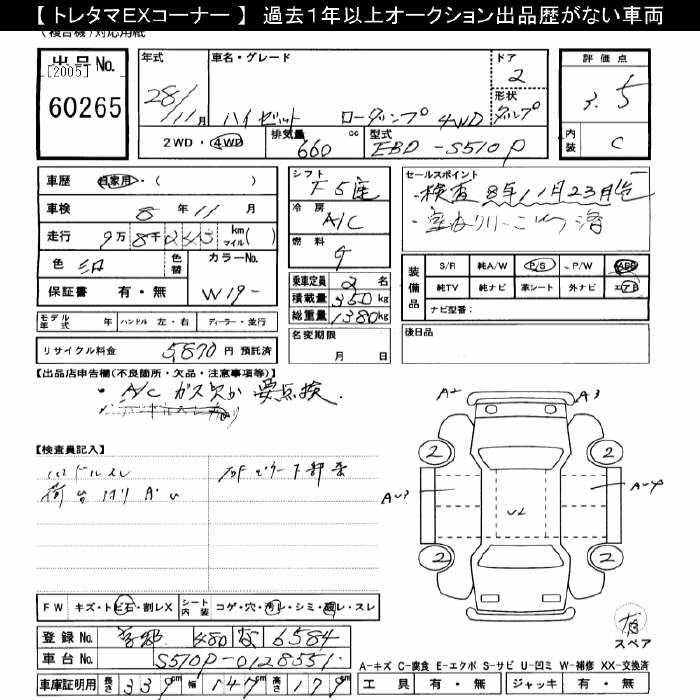 【 トレタマEXコーナー 】 過去1年以上オークション出品歴がない車両
(複合機)対応用紙
出品No.
[2005]
60265
年式
28/11月
車名・グレード
ハイゼット ローダンプ 4WD
ドア
2
形状
ダンプ
2WD・4WD
排気量
660 cc
型式
EBD-S510P
評価点
3.5
内装
C
車歴 自家用・( )
車検 8年11月
走行 9万8千245 km マイル( )
色
色替
カラーNo.
W19-
保証書 有・無
シフト
F5速
冷房
A/C
燃料
G
乗車定員 2名
積載量 350kg
総重量 1380kg
名変期限
月 日
セールスポイント
・検査8年11月23日迄
・室内クリーニング済
装備品
S/R 純A/W P/S P/W ABS
純TV 純ナビ 革シート 外ナビ エアB
ナビ型番:
後日品
モデル年式 年 ハンドル 左・右 ディーラー・並行
リサイクル料金 5,870円 預託済
【出品店申告欄(不良箇所・欠品・注意事項等)】
・A/C ガス欠か 要点検.
【検査員記入】
ハンドルスレ
荷台
下部
A2
A3
2
2
A
A
U2
2
2
FW キズ・トビ石・割レX シート内装 コゲ・穴・汚レ・シミ・破レ・スレ
登録No. 480 6584
車台No. S510P-0128551
車庫証明用 長さ 339cm 幅 147cm 高さ 178cm
スペア
有
A-キズ C-腐食 E-エクボ S-サビ U-凹ミ W-補修 XX-交換済
工具 有・無 ジャッキ 有・無